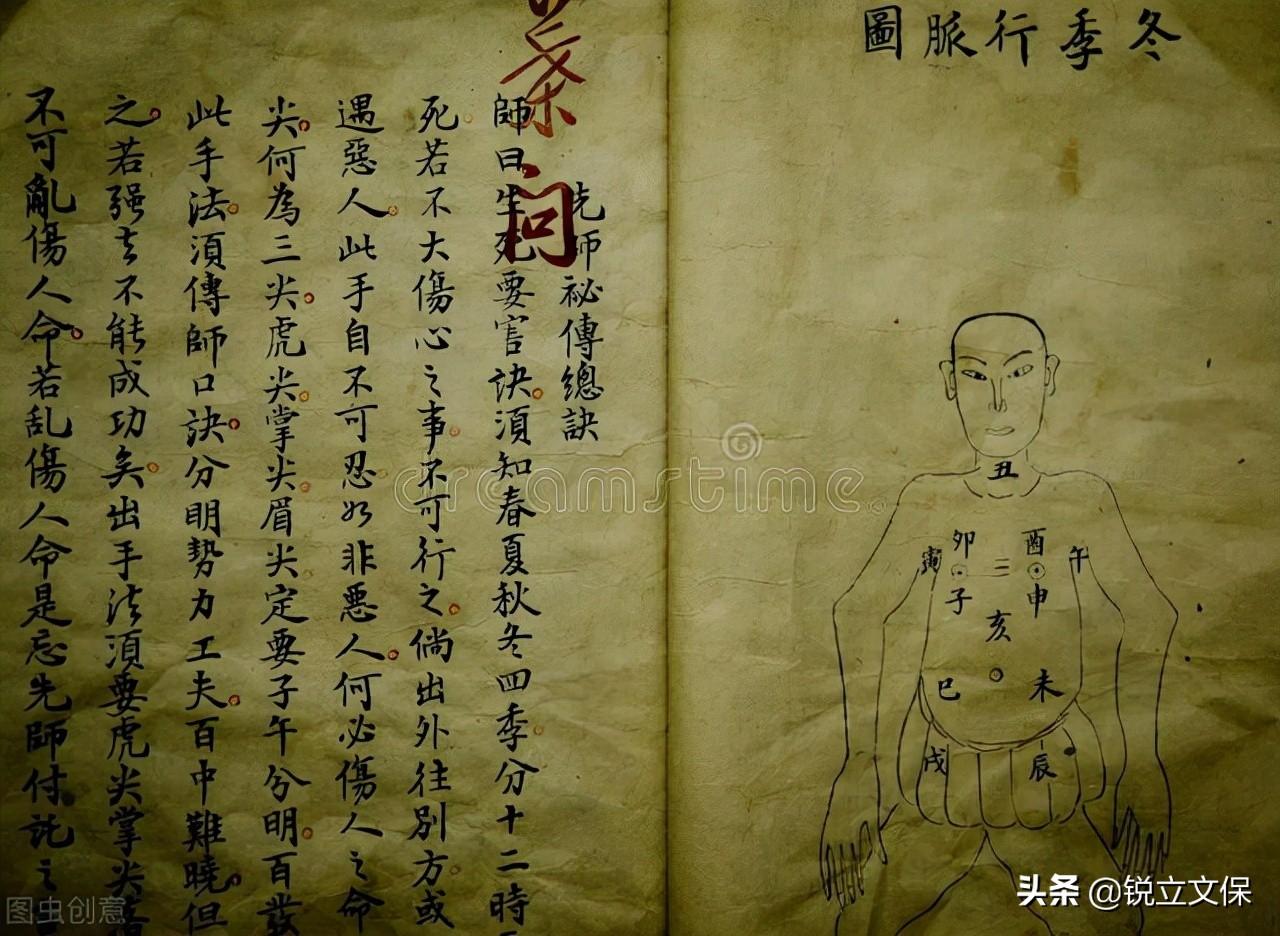 冬季行脈圖
丑
酉
卯
午
寅
申
子
亥
未
巳
辰
戌
問
先師祕傳總訣
師曰生死要害訣須知春夏秋冬四季分十二時
死若不大傷心之事不可行之倘出外往別方或
遇惡人此手自不可忍如非悪人何必傷人之命
尖何為三尖虎尖掌尖眉尖定要子午分明百發
此手法須傳師口訣分明勢力工夫百中難曉但
之若强去不能成功矣出手法須要虎尖掌尖
不可亂傷人命若乱傷人命是忘先師付託之
dreamstime.
图虫创意
头条 @锐立文保